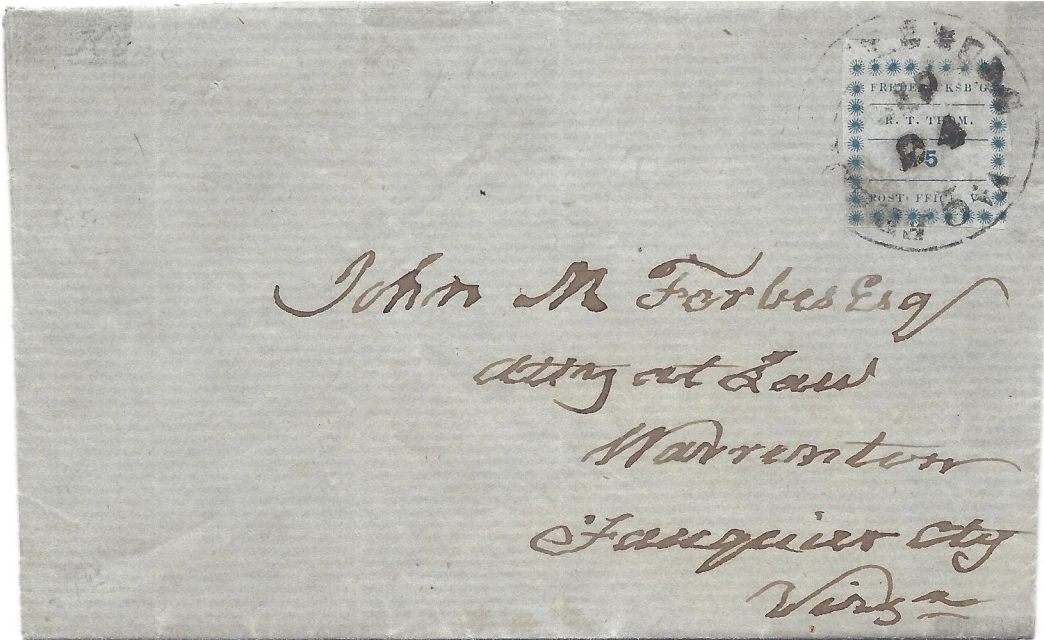 FREDERICKSB'G
R. T. THOM.
5
POST OFFICE, V
John M Forbes Esq
Atty at Law
Warrenton
Fauquier Cty
Virgᵃ